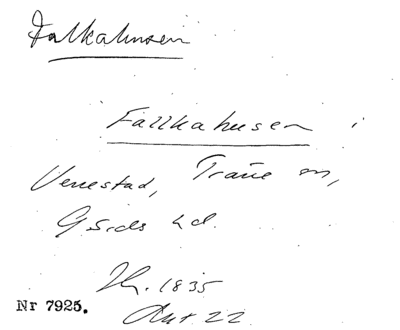 Falkahusen
Fallkahusen i
Venestad, Träne sn,
Gärds hd.
Hr. 1835
Nr 7925.
Akt 22